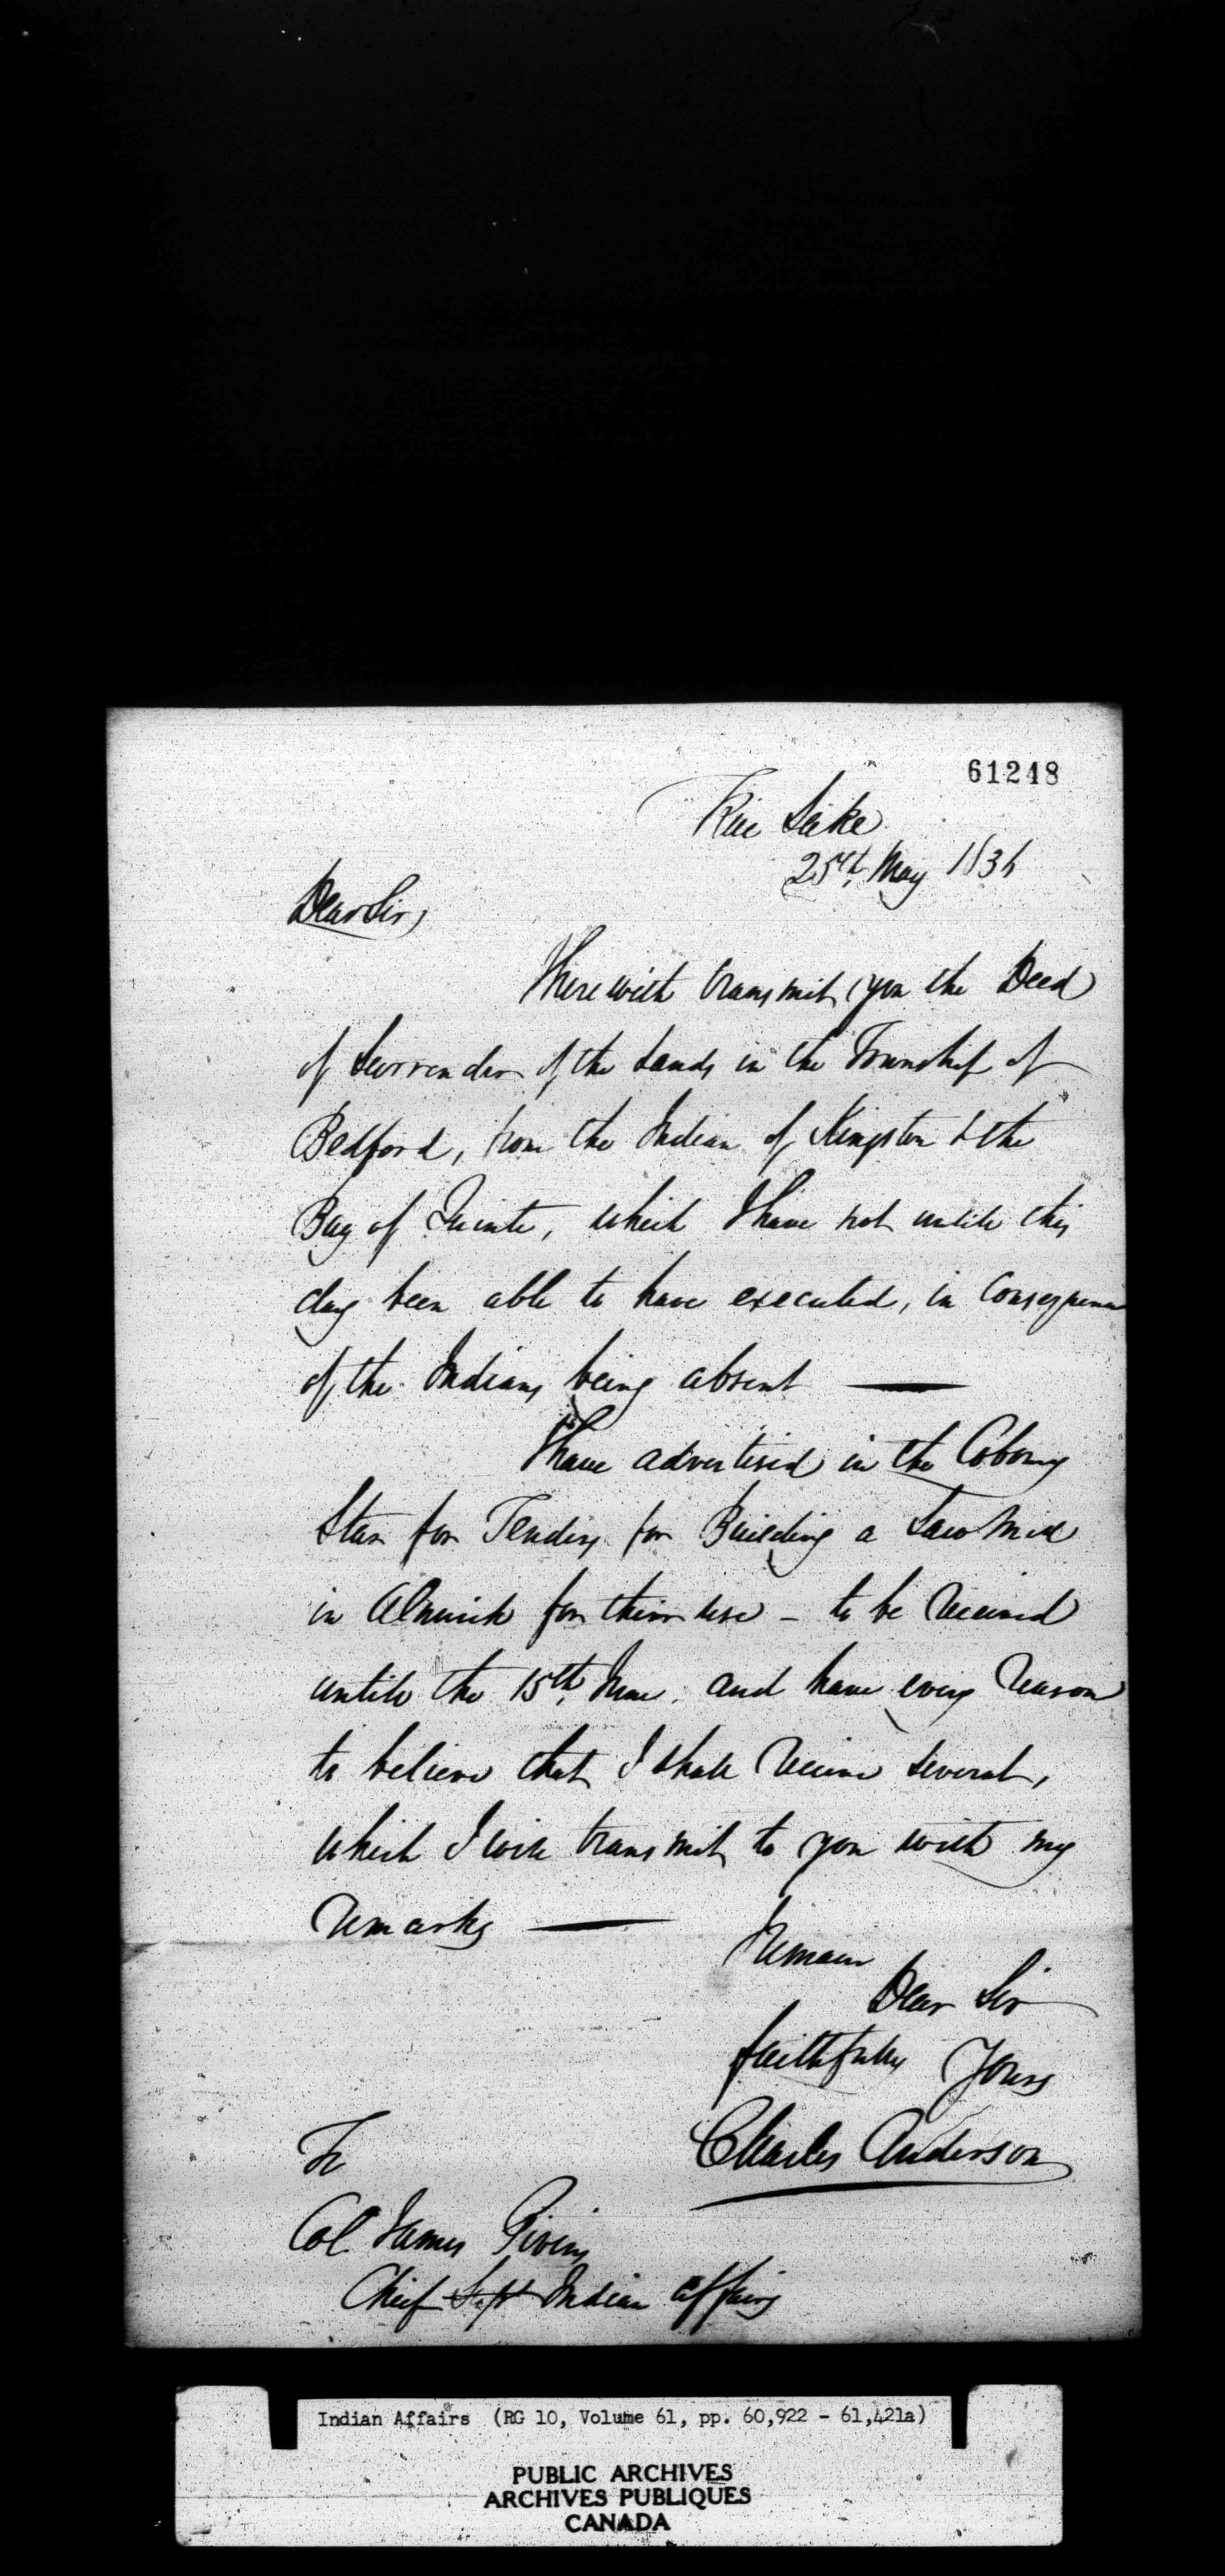 61248
Rice Lake
25th, May 1836
Dear Sir,
I herewith transmit you the Deed
of Surrender of the Lands in the Township of
Bedford, from the Indian of Kingston & the
Bay of Quinte, which I have not untile this
day been able to have executed, in Consequence
of the Indians being absent —
I have advertised in the Cobourg
Star for Tenders for Building a Saw Mill
in Alnwick for their use – to be received
untile the 15th, June. and have every reason
to believe that I shall receive several,
which I will transmit to you with my
remarks —
I remain
Dear Sir
faithfully Yours
Charles Anderson
To
Col. James Givins
Chief Supt Indian affairs
Indian Affairs (RG 10, Volume 61, pp. 60,922 - 61,421a)
PUBLIC ARCHIVES
ARCHIVES PUBLIQUES
CANADA